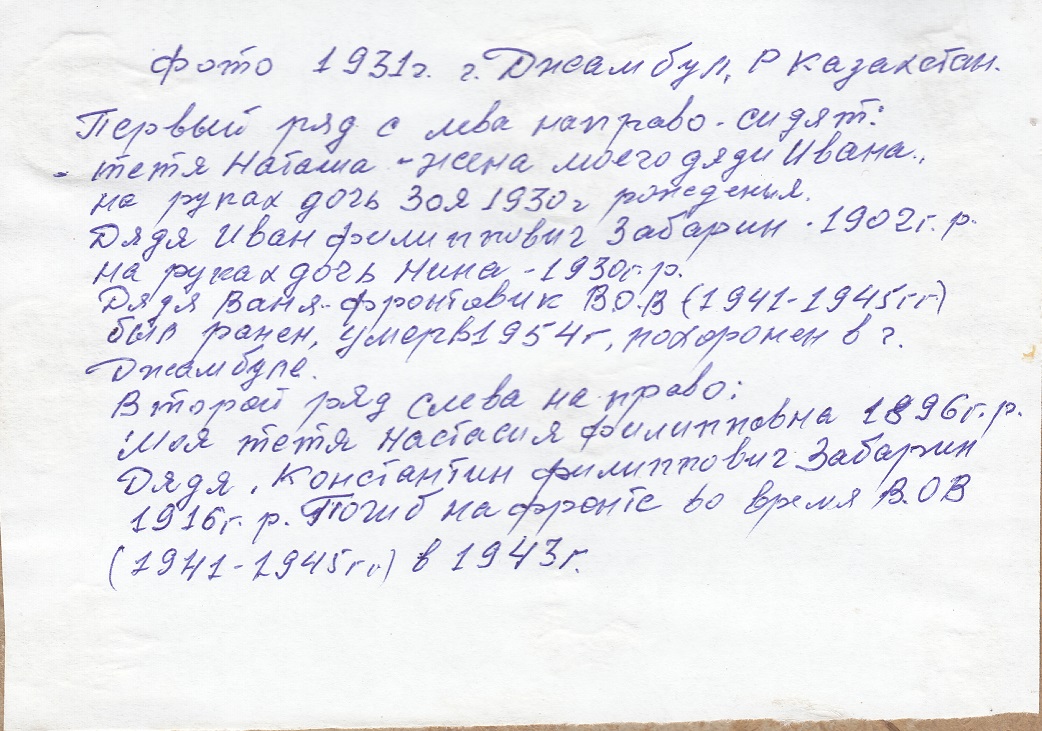 фото 1931г. г. Джамбул, Р Казахстан.
Первый ряд с лева направо - сидят:
- тетя Наташа - жена моего дяди Ивана.,
на руках дочь Зоя 1930г рождения.
Дядя Иван Филиппович Забарин - 1902г. р.
на руках дочь Нина - 1930г.р.
Дядя Ваня - фронтовик В.О.В (1941-1945гг)
был ранен, умер в 1954г, похоронен в г.
Джамбуле.
Второй ряд слева на право:
Моя тетя Настасия Филипповна 1896г. р.
Дядя, Константин Филиппович Забарин
1916г. р. Погиб на фронте во время В.О.В
(1941-1945гг) в 1943г.